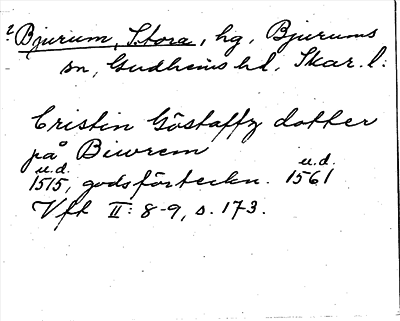 ? Bjurum, Stora, hg, Bjurums
sn, Gudhems hd, Skar. l.
Cristin Göstaffz dotter
på Biwrem
u.d. u.d.
1515, godsförteckn. 1561
Vft II: 8-9, s. 173.